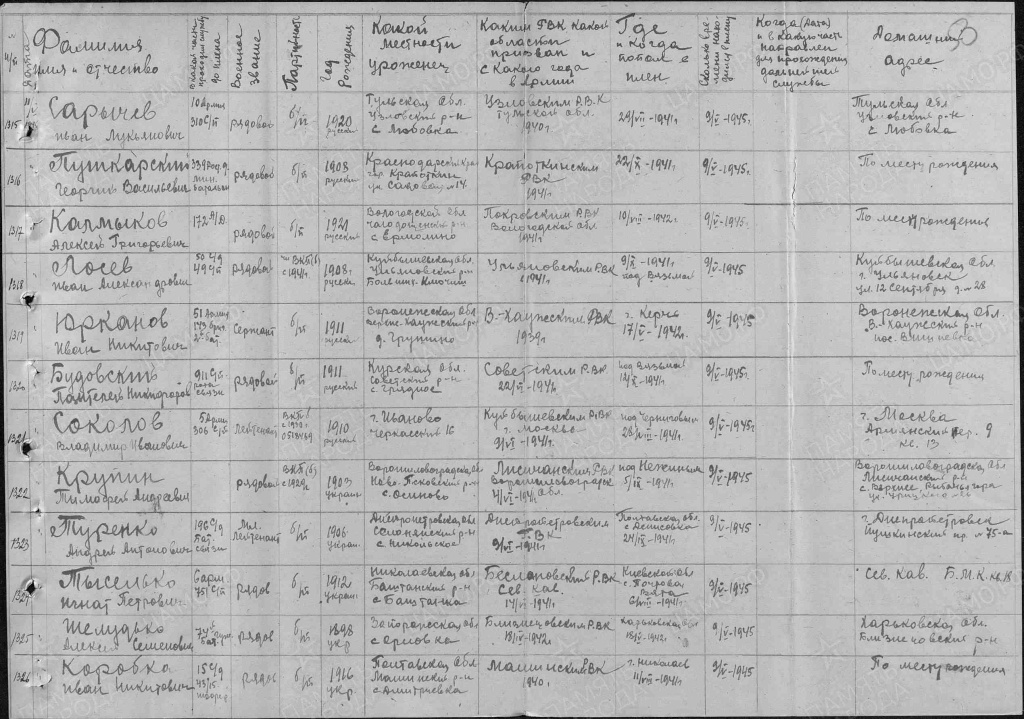 30
№ п/п
Фамилия имя и отчество
в какой части проходил службу до плена
Военное звание
Партийность
Год рождения
Какой местности уроженец
Каким РВК какой области призван и с какого года в армии
Где и когда попал в плен
Сколько времени находился в плену
Когда (дата) и в какую часть направлен для прохождения дальнейшей службы
Домашний адрес
1315 Сарычев Иван Лукьянович
10 Армия 310 С/П
рядовой
б/п
1920 русский
Тульская обл. Узловский р-н с Любовка
Узловским Р.В.К Тульской обл. 1940г.
29/VII-1941г.
9/V-1945г.
Тульская Обл Узловский р-н с Любовка
1316 Пушкарский Георгий Васильевич
рядовой
б/п
1908 русский
Краснодарский край гор. Кропоткин ул. Садовая №14.
Кропоткинским РВК 1941г
22/XI-1941г
9/V-1945г.
По месту рождения
1317 Калмыков Алексей Григорьевич
172 А/П.
рядовой
б/п
1921 русский
Вологодской обл с Ермолино
Покровским РВК Вологодской обл 1941г
10/VII-1942г.
9/V-1945г.
По месту рождения
1318 Лосев Иван Александрович
49 С/П
рядовой
ВКП(б) с 1941г
1908г. русский
Куйбышевская обл. Ульяновский р-н
Ульяновским РВК с 1941г
9/X-1941г под Вязьмой
9/V-1945
Куйбышевская Обл. г. Ульяновск ул. 12 Сентября д. №28
1319 Юрканов Иван Никитович
51 Армия
Сержант
б/п
1911 русск
Воронежская Обл. д. Грушино
В.-Хавским РВК 1939г.
г. Керчь 17/V-1942г.
9/V-1945
Воронежская Обл. В.-Хавский р-н
1320 Будовский
рота связи
рядовой
б/п
1911 русский
Курская Обл. Советский р-н с. Грязное
Советским РВК 22/VI-1941г
под Вязьмой 12/X-1941г.
9/V-1945г.
По месту рождения
1321 Соколов Владимир Иванович
5 Армия 306 С/П
Лейтенант
1910 русский
г. Иваново Черкасский 16
Куйбышевским РВК г. Москва 9/VII-1941г.
под Черниговым 28/VIII-1941г.
9/V-1945г.
г. Москва Армянский пер. 9 кв. 13
1322 Крупин Тимофей Андреевич
рядовой
ВКП(б) с 1929г
1903 украин
Ворошиловградская обл Ново-Псковский р-н с. Осиново
Лисичанским РВК Ворошиловградск обл 4/VII-41г
под Нежиным 5/IX-1941г
9/V-1945
Ворошиловградская Обл Лисичанский р-н
1323 Туренко Андрей Антонович
196 С/Д Бат. связи
Мл. Лейтенант
б/п
1906 украин.
Днепропетровская обл Солонянский р-н с Никольское
Днепропетровским Г.В.К 9/VII-1941г
Полтавская обл. с Денисовка 24/IX-1941г
9/V-1945
г. Днепропетровск Пушкинский пр. № 75-а
1324 Тыселько Игнат Петрович
6 арм 751 С/П
рядов
б/п
1912 украин.
Николаевская обл Баштанский р-н с Баштанка
Беслановским РВК Сев. кав. 14/VI-1941г
Киевской обл
9/V-1945
Сев. Кав. Б.М.К.
1325 Желудько Алексей Семенович
рядов
б/п
1898 укр
Запорожская обл с Орловка
Близнецовским РВК 18/V-1942г.
Харьковская обл 18/V-1942г.
9/V-1945г
Харьковская обл. Близнецовский р-н
1326 Коробка Иван Никитович
15 С/Д
рядов
б/п
1916 укр.
Полтавская Обл Машинский р-н с Дмитриевка
Машинским РВК 1940г.
г. Николаев 11/VIII-1941г
9/V-1945г
По месту рождения